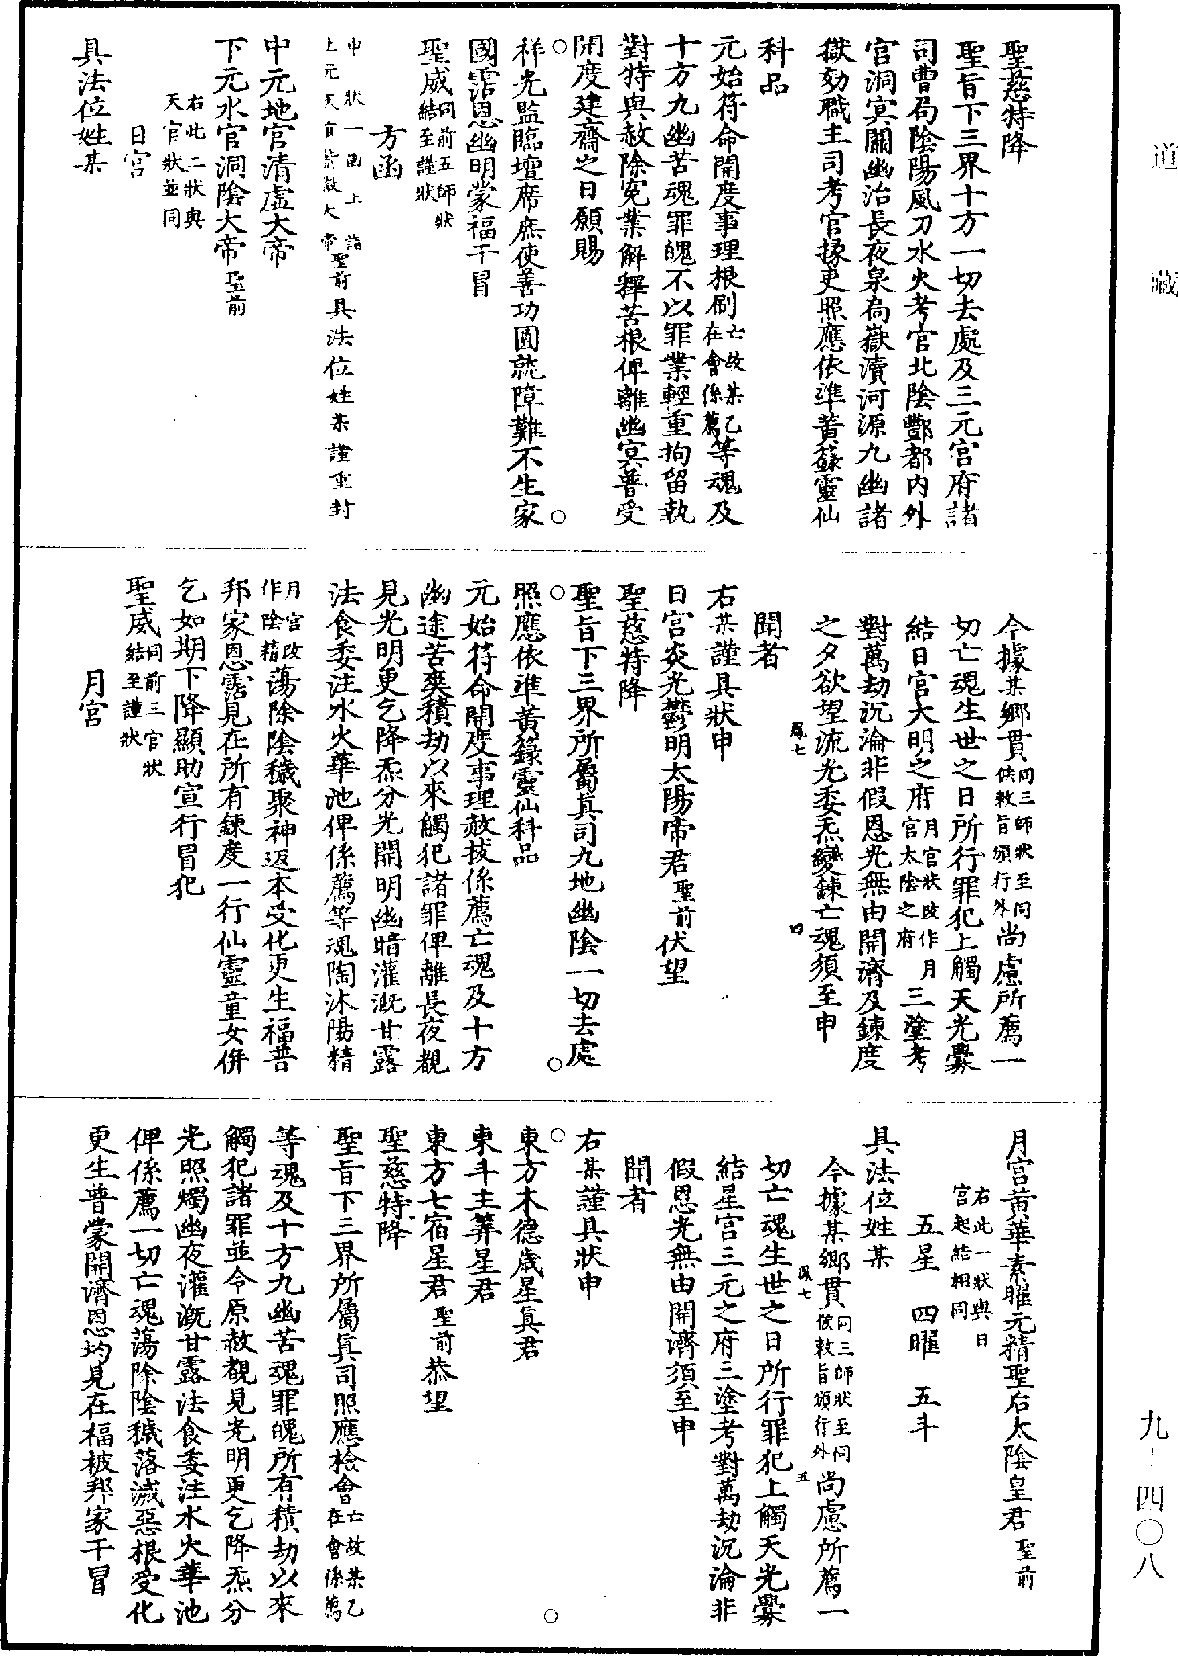 道藏
聖慈特降
聖旨下三界十方一切去處及三元宮府諸
司曹局陰陽風刀水火考官北陰酆都內外
官洞冥關幽治長夜泉扃嶽瀆河源九幽諸
獄劾職主司考官掾吏照應依準黃籙靈仙
科品
元始符命開度事理根刷亡故某乙在會係薦等魂及
十方九幽苦魂罪魄不以罪業輕重拘留執
對特與赦除冤業解釋苦根俾離幽冥普受
開度建齋之日願賜
祥光監臨壇席庶使善功圓就障難不生家
國霑恩幽明蒙福干冒
聖威同前五師狀結至謹狀
方函
申狀一函上詣
上元天官紫微大帝聖前具法位姓某謹重封
中元地官清虛大帝
下元水官洞陰大帝聖前
右此二狀與天官狀並同
日宮
具法位姓某
今據某鄉貫同三師狀至同佽敕旨頒行外尚慮所薦一
切亡魂生世之日所行罪犯上觸天光釁
結日宮大明之府月宮狀改作月宮太陰之府三塗考
對萬劫沉淪非假恩光無由開濟及鍊度
之夕欲望流光委炁變鍊亡魂須至申
聞者
右某謹具狀申
日宮炎光鬱明太陽帝君聖前伏望
聖慈特降
聖旨下三界所屬真司九地幽陰一切去處
照應依準黃籙靈仙科品
元始符命開度事理赦拔係薦亡魂及十方
幽途苦爽積劫以來觸犯諸罪俾離長夜覩
見光明更乞降炁分光開明幽暗灌溉甘露
法食委注水火華池俾係薦等魂陶沐陽精
月宮改作陰精蕩除陰穢聚神返本受化更生福普
邦家恩霑見在所有鍊度一行仙靈童女併
乞如期下降顯助宣行冒犯
聖威同前三官狀結至謹狀
月宮
月宮黃華素曜元精聖后太陰皇君聖前
右此一狀與日宮起結相同
五星 四曜 五斗
具法位姓某
今據某鄉貫同三師狀至同佽敕旨頒行外尚慮所薦一
切亡魂生世之日所行罪犯上觸天光釁
結星宮三元之府三塗考對萬劫沉淪非
假恩光無由開濟須至申
聞者
右某謹具狀申
東方木德歲星真君
東斗主筭星君
東方七宿星君聖前恭望
聖慈特降
聖旨下三界所屬真司照應檢會亡故某乙在會係薦
等魂及十方九幽苦魂罪魄所有積劫以來
觸犯諸罪並令原赦覩見光明更乞降炁分
光照燭幽夜灌溉甘露法食委注水火華池
俾係薦一切亡魂蕩除陰穢落滅惡根受化
更生普蒙開濟恩均見在福被邦家干冒
九-四〇八